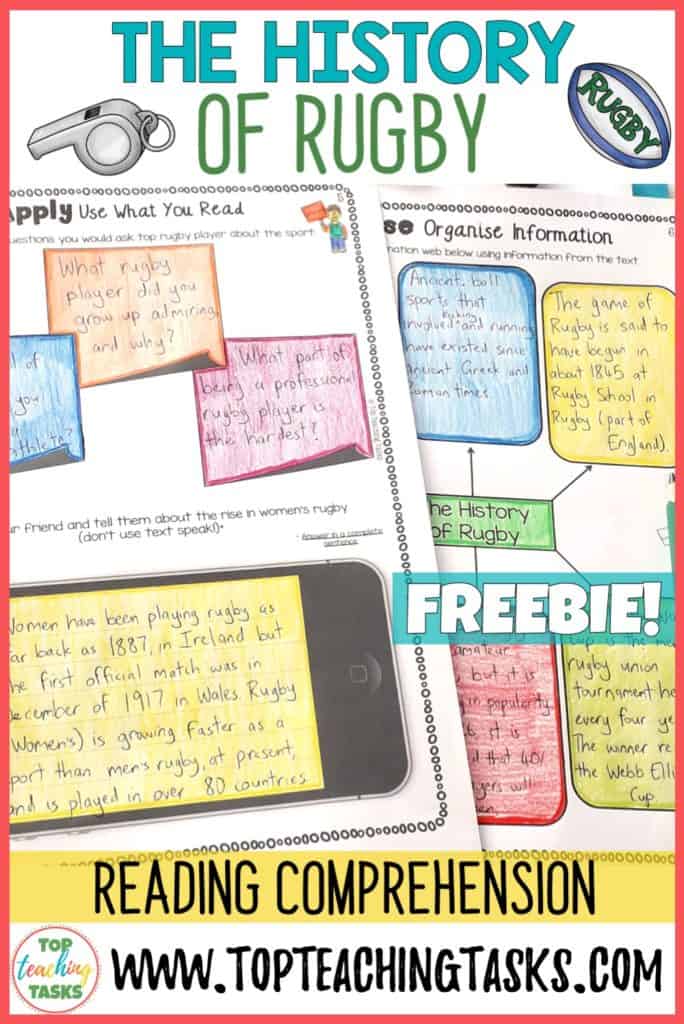 THE HISTORY
OF RUGBY
RUGBY
Apply Use What You Read
questions you would ask top rugby player about the sport.
What rugby
player did you
grow up admiring,
and why?
of
you
What part of
being a professional
rugby player is
the hardest?
friend and tell them about the rise in women's rugby
(don't use text speak!)•
• Answer in a complete
sentence
Women have been playing rugby as
far back as 1887, in Ireland but
the first official match was in
December of 1917 in Wales. Rugby
(Women's) is growing faster as a
sport than men's rugby, at present,
and is played in over 80 countries.
5
6
Organise Information
web below using information from the text.
Ancient ball
sports that
involved kicking and running
have existed since
Ancient Greek and
Roman times.
The game of
Rugby is said to
have begun in
about 1845 at
Rugby School in
Rugby (part of
England).
The History
of Rugby
FREEBIE!
amateur
, but it is
in popularity
it is
that 40%
will
rugby union
tournament
every four
The winner
the Webb
Cup
READING COMPREHENSION
TOP
teaching
TASKS
WWW.TOPTEACHINGTASKS.COM